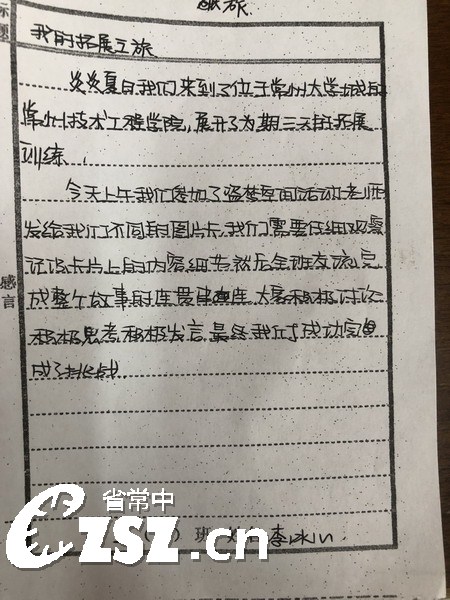 标题
我的拓展之旅
炎炎夏日,我们来到了位于常州大学城的
常州技术工程学院,展开了为期三天的拓展
训练.
今天上午我们参加了盗梦空间活动.老师
发给我们不同的图片卡.我们需要仔细观察
记忆卡片上的内容细节.然后全班交流,完
成整个故事的连贯串连.大家积极讨论
积极思考,积极发言,最终我们成功完
成了挑战.
感言
班
李
省常中
CZSZ.cn